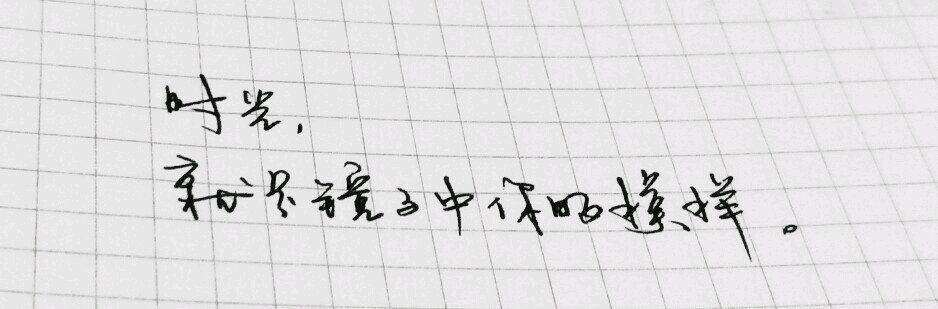 时光,
亦必是镜子中你的模样。